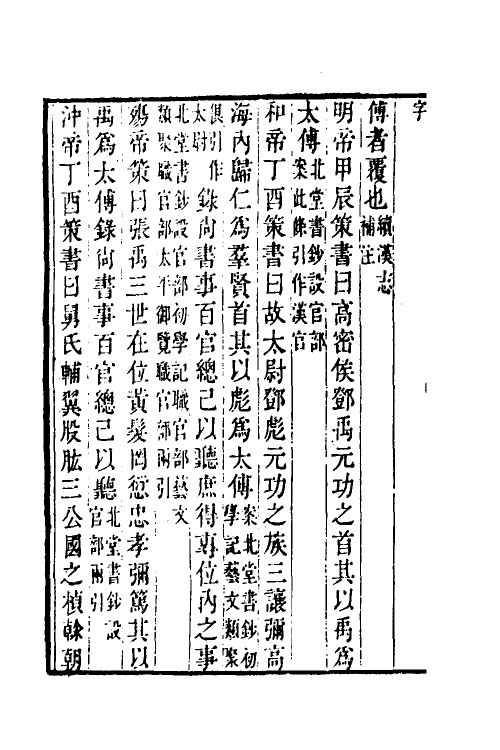 字
傅者覆也續漢志補注
明帝甲辰策書曰高密侯鄧禹元功之首其以禹爲
太傅北堂書鈔設官部案此條引作漢官
和帝丁酉策書曰故太尉鄧彪元功之族三讓彌高
海內歸仁爲羣賢首其以彪爲太傅案北堂書鈔初學記藝文類聚
俱引作太尉錄尚書事百官總己以聽庶得專位內之事
北堂書鈔設官部初學記職官部藝文類聚職官部太平御覽職官部兩引
殤帝策曰張禹三世在位黃髮罔愆忠孝彌篤其以
禹爲太傅錄尚書事百官總己以聽北堂書鈔設官部兩引
沖帝丁酉策書曰舅氏輔翼股肱三公國之楨榦朝